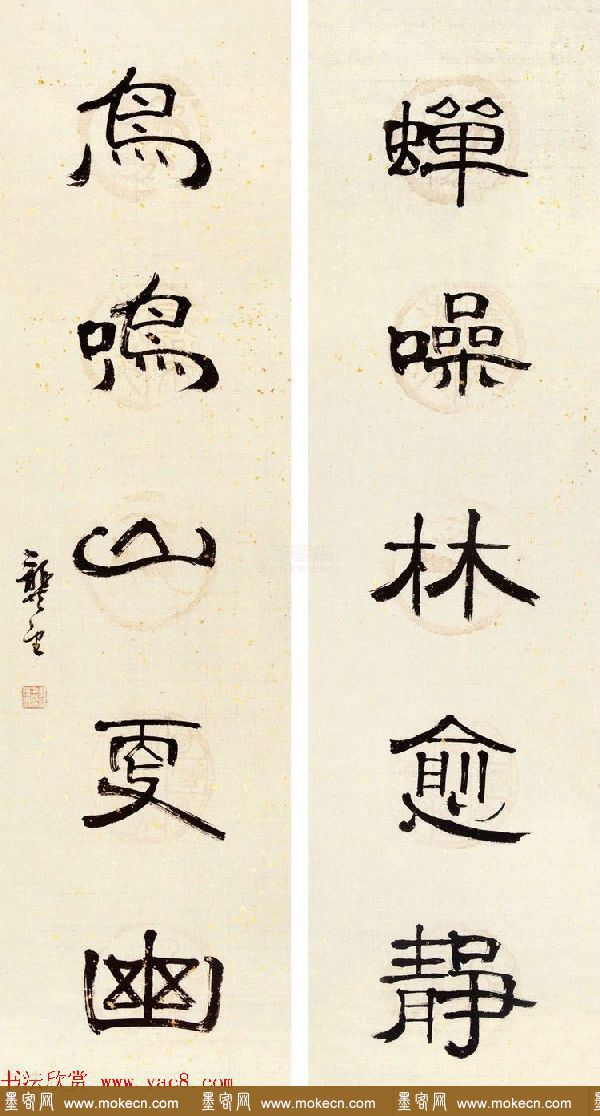 蟬噪林愈静
鳥鳴山更幽
龔望
书法欣赏 www.yac8.com
墨客网 www.mokecn.com 墨客网 www.mokecn.com 墨客网 www.mokecn.com